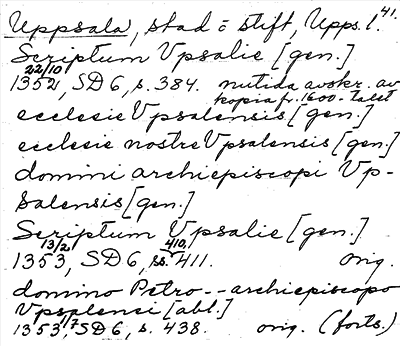 Uppsala, stad o stift, Upps. l. 41.
Scriptum Vpsalie [gen.]
22/10
1352, SD 6, s. 384. nutida avskr. av
kopia fr. 1600-talet
ecclesie Vpsalensis [gen.]
ecclesie nostre Vpsalensis [gen.]
domini archiepiscopi Vp-
salensis [gen.]
Scriptum Vpsalie [gen.]
13/2 410,
1353, SD 6, ss. 411. orig.
domino Petro -- archiepiscopo
Vpsplensi [abl.]
1353 /7, SD 6, s. 438. orig. (forts.)